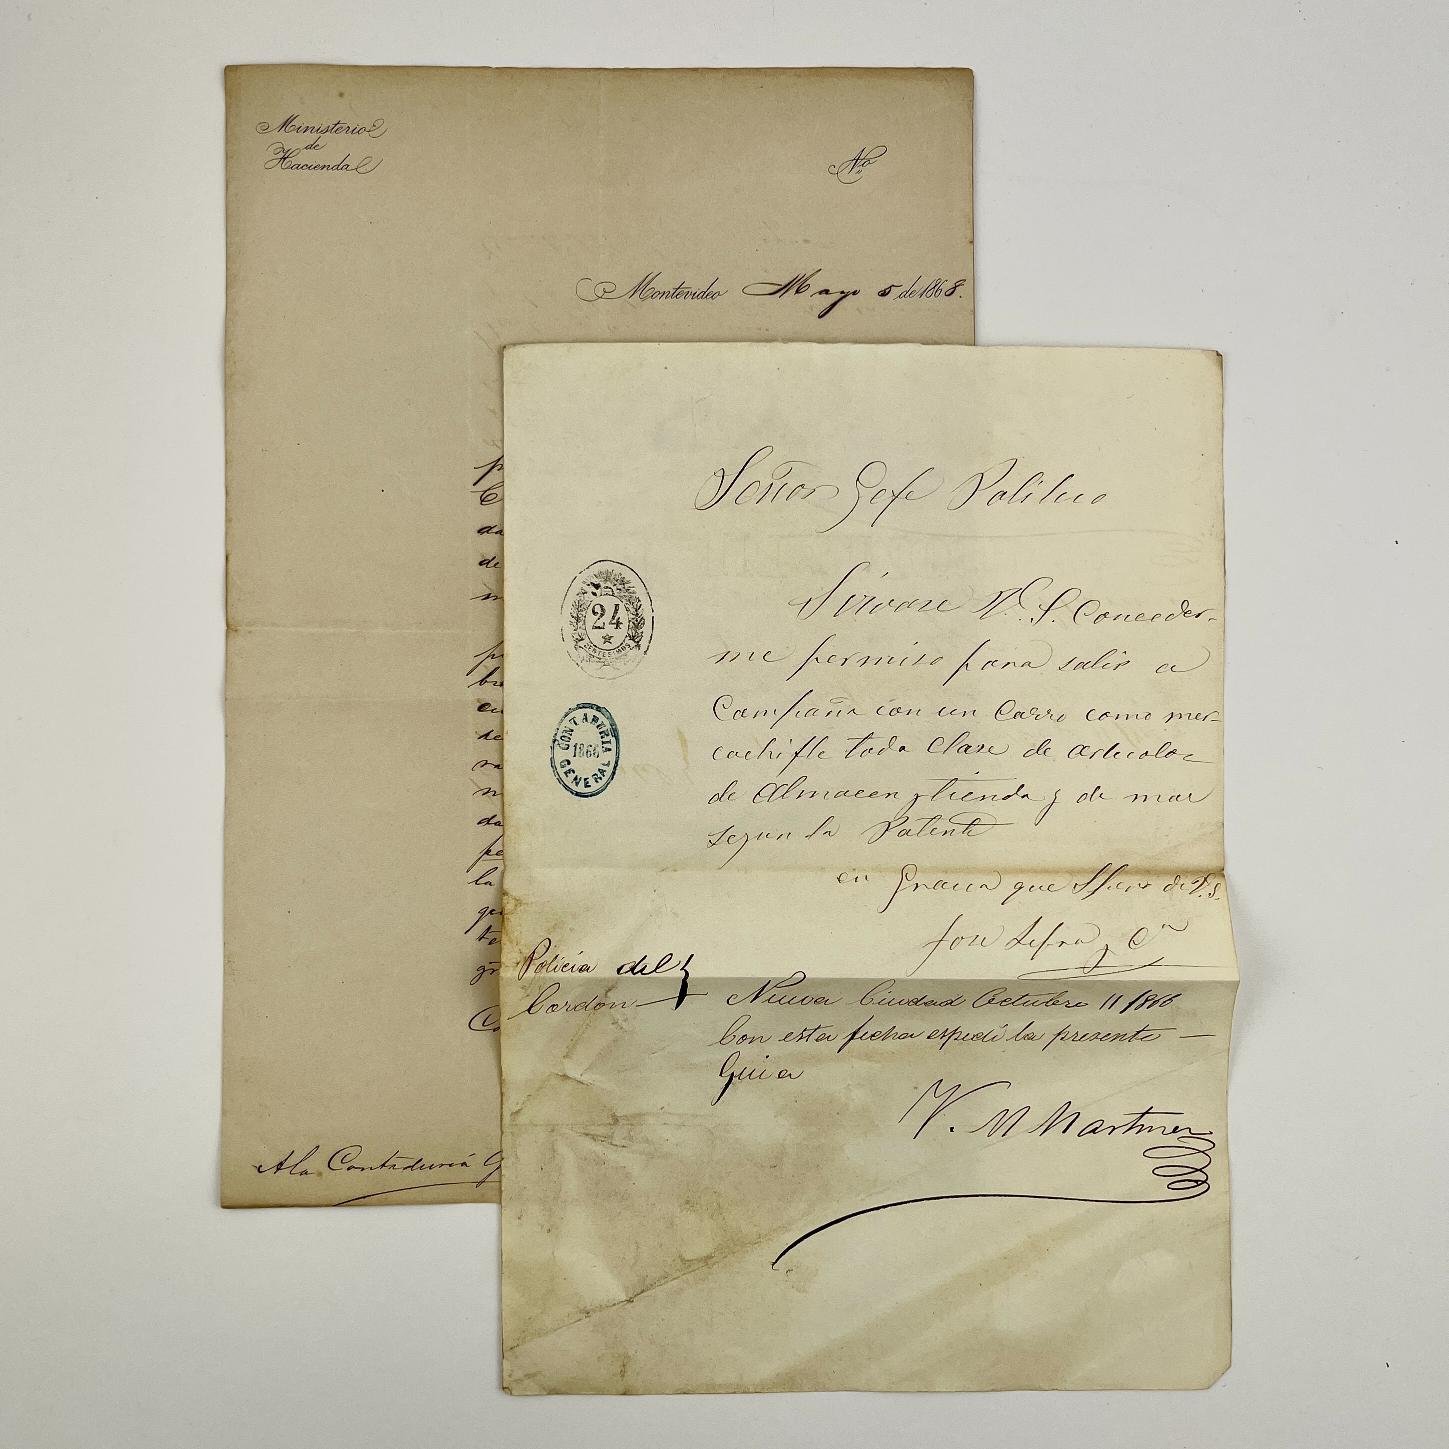 Ministerio
de
Hacienda
Nº
Montevideo Mayo 5 de 1868.
da
de
en
da
la
Co
A la Contaduria G
Señor Gefe Politico
Sirvase V. S. Conceder-
me permiso para salir a
Campaña con un Carro como mer-
cachifle toda Clase de articulos
de Almacen y tienda y de mar
segun la Patente
en Gracia que de V. S.
Jose y Cª
24
CENTESIMOS
CONTADURIA
1866
GENERAL
Policia del
Cordon
Nueva Ciudad Octubre 11 1866
Con esta fecha espedi la presente
Guia
V. M Martinez